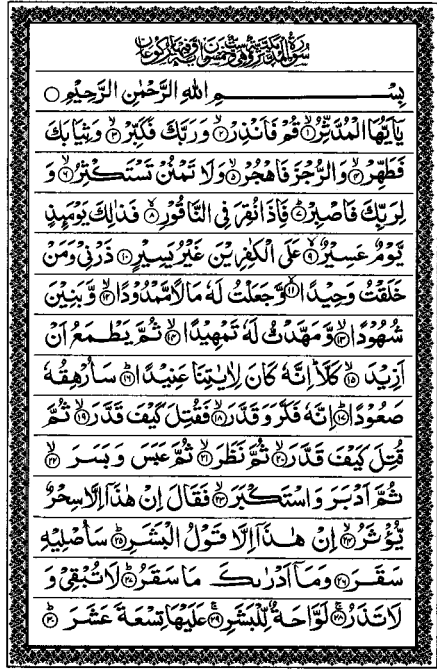 سورة المدثر مكية وهي ست وخمسون آية وفيها ركوعان
بِسْمِ اللهِ الرَّحْمٰنِ الرَّحِيْمِ ○
يٰٓاَيُّهَا الْمُدَّثِّرُ ۙ۱ قُمْ فَاَنْذِرْ ۙ۲ وَرَبَّكَ فَكَبِّرْ ۙ۳ وَثِيَابَكَ
فَطَهِّرْ ۙ۴ وَالرُّجْزَ فَاهْجُرْ ۙ۵ وَلَا تَمْنُنْ تَسْتَكْثِرُ ۙ۶ وَ
لِرَبِّكَ فَاصْبِرْ ؕ۷ فَاِذَا نُقِرَ فِی النَّاقُوْرِ ۙ۸ فَذٰلِكَ يَوْمَئِذٍ
يَّوْمٌ عَسِيْرٌ ۙ۹ عَلَی الْكٰفِرِيْنَ غَيْرُ يَسِيْرٍ ۱۰ ذَرْنِیْ وَمَنْ
خَلَقْتُ وَحِيْدًا ۙ۱۱ وَّجَعَلْتُ لَهٗ مَالًا مَّمْدُوْدًا ۙ۱۲ وَّبَنِيْنَ
شُهُوْدًا ۙ۱۳ وَّمَهَّدْتُّ لَهٗ تَمْهِيْدًا ۙ۱۴ ثُمَّ يَطْمَعُ اَنْ
اَزِيْدَ ۙ۱۵ كَلَّا ؕ اِنَّهٗ كَانَ لِاٰيٰتِنَا عَنِيْدًا ؕ۱۶ سَاُرْهِقُهٗ
صَعُوْدًا ؕ۱۷ اِنَّهٗ فَكَّرَ وَقَدَّرَ ۙ۱۸ فَقُتِلَ كَيْفَ قَدَّرَ ۙ۱۹ ثُمَّ
قُتِلَ كَيْفَ قَدَّرَ ۙ۲۰ ثُمَّ نَظَرَ ۙ۲۱ ثُمَّ عَبَسَ وَبَسَرَ ۙ۲۲
ثُمَّ اَدْبَرَ وَاسْتَكْبَرَ ۙ۲۳ فَقَالَ اِنْ هٰذَاۤ اِلَّا سِحْرٌ
يُّؤْثَرُ ۙ۲۴ اِنْ هٰذَاۤ اِلَّا قَوْلُ الْبَشَرِ ؕ۲۵ سَاُصْلِيْهِ
سَقَرَ ۲۶ وَمَاۤ اَدْرٰىكَ مَا سَقَرُ ؕ۲۷ لَا تُبْقِیْ وَ
لَا تَذَرُ ۚ۲۸ لَوَّاحَةٌ لِّلْبَشَرِ ۚ۲۹ عَلَيْهَا تِسْعَةَ عَشَرَ ؕ۳۰